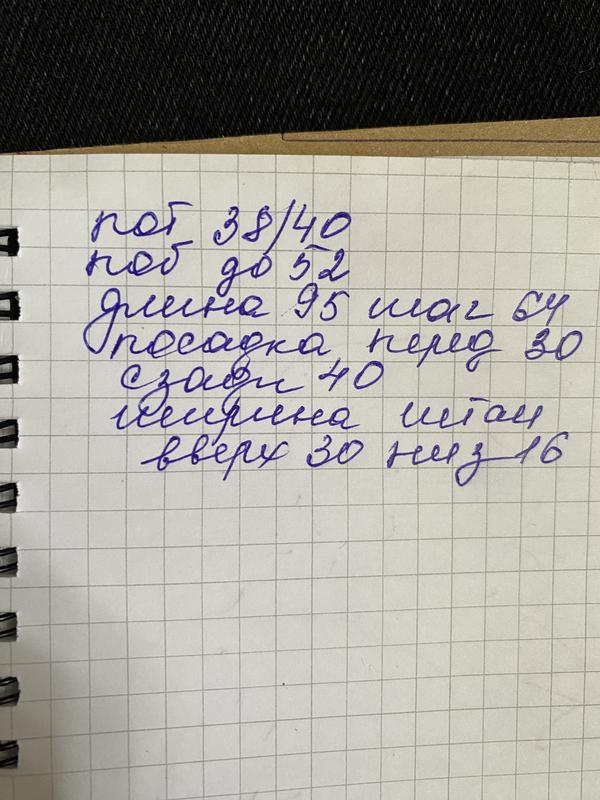 пот 38/40
поб до 52
длина 95 шаг 64
посадка перед 30
сзади 40
ширина штан
вверх 30 низ 16